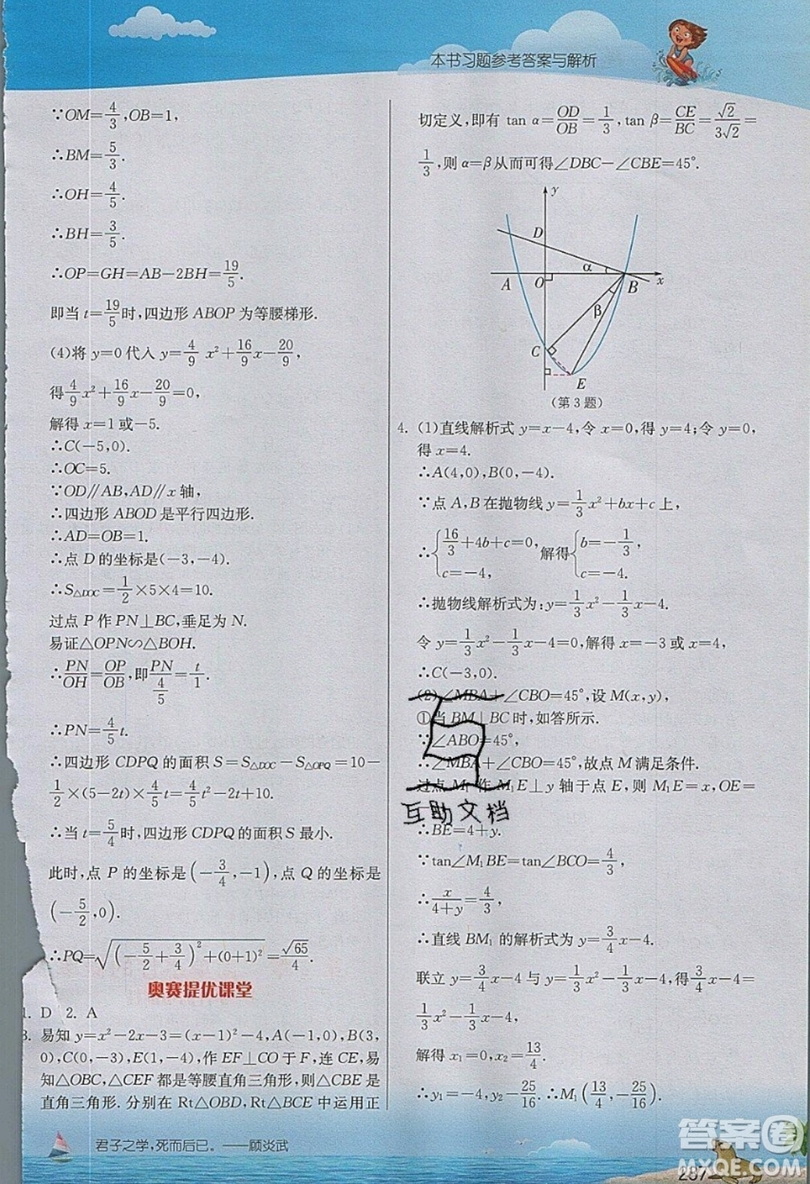 本书习题参考答案与解析
∵OM=4/3,OB=1,
∴BM=5/3.
∴OH=4/5.
∴BH=3/5.
∴OP=GH=AB-2BH=19/5.
即当 t=19/5时,四边形 ABOP 为等腰梯形.
(4)将 y=0 代入 y=4/9 x²+16/9x-20/9,
得4/9x²+16/9x-20/9=0,
解得 x=1或-5.
∴C(-5,0).
∴OC=5.
∵OD∥AB,AD∥x 轴,
∴四边形 ABOD 是平行四边形.
∴AD=OB=1.
∴点 D 的坐标是(-3,-4).
∴S△DOC=1/2×5×4=10.
过点 P 作 PN⊥BC,垂足为 N.
易证△OPN∽△BOH.
∴PN/OH=OP/OB,即PN/(4/5)=t/1.
∴PN=4/5t.
∴四边形 CDPQ 的面积 S=S△DOC-S△OPQ=10-
1/2×(5-2t)×4/5t=4/5t²-2t+10.
∴当 t=5/4时,四边形 CDPQ 的面积 S 最小.
此时,点 P 的坐标是(-3/4,-1),点 Q 的坐标是
(-5/2,0).
∴PQ=√((-5/2+3/4)²+(0+1)²)=√65/4.
奥赛提优课堂
1. D 2. A
3. 易知 y=x²-2x-3=(x-1)²-4,A(-1,0),B(3,
0),C(0,-3),E(1,-4),作 EF⊥CO 于 F,连 CE,易
知△OBC,△CEF 都是等腰直角三角形,则△CBE 是
直角三角形. 分别在 Rt△OBD,Rt△BCE 中运用正
切定义,即有 tan α=OD/OB=1/3,tan β=CE/BC=√2/3√2=
1/3,则 α=β从而可得∠DBC-∠CBE=45°.
y
D
α
A O B x
β
C
E
(第 3 题)
4. (1)直线解析式 y=x-4,令 x=0,得 y=4;令 y=0,
得 x=4.
∴A(4,0),B(0,-4).
∵点 A,B 在抛物线 y=1/3x²+bx+c 上,
∴{16/3+4b+c=0, c=-4, 解得{b=-1/3, c=-4.
∴抛物线解析式为:y=1/3x²-1/3x-4.
令 y=1/3x²-1/3x-4=0,解得 x=-3 或 x=4,
∴C(-3,0).
(2)∠MBA+∠CBO=45°,设 M(x,y),
①当 BM⊥BC时,如答所示.
∵∠ABO=45°,
∴∠MBA+∠CBO=45°,故点 M 满足条件.
过点 M₁ 作 M₁E⊥y 轴于点 E,则 M₁E=x,OE=
∴BE=4+y.
∵tan∠M₁BE=tan∠BCO=4/3,
∴x/(4+y)=4/3,
∴直线 BM₁ 的解析式为 y=3/4x-4.
联立 y=3/4x-4 与 y=1/3x²-1/3x-4,得3/4x-4=
1/3x²-1/3x-4,
解得 x₁=0,x₂=13/4.
∴y₁=-4,y₂-25/16. ∴M₁(13/4,-25/16).
互助文档
君子之学,死而后已。——顾炎武
237
答案圈
MXQE.COM